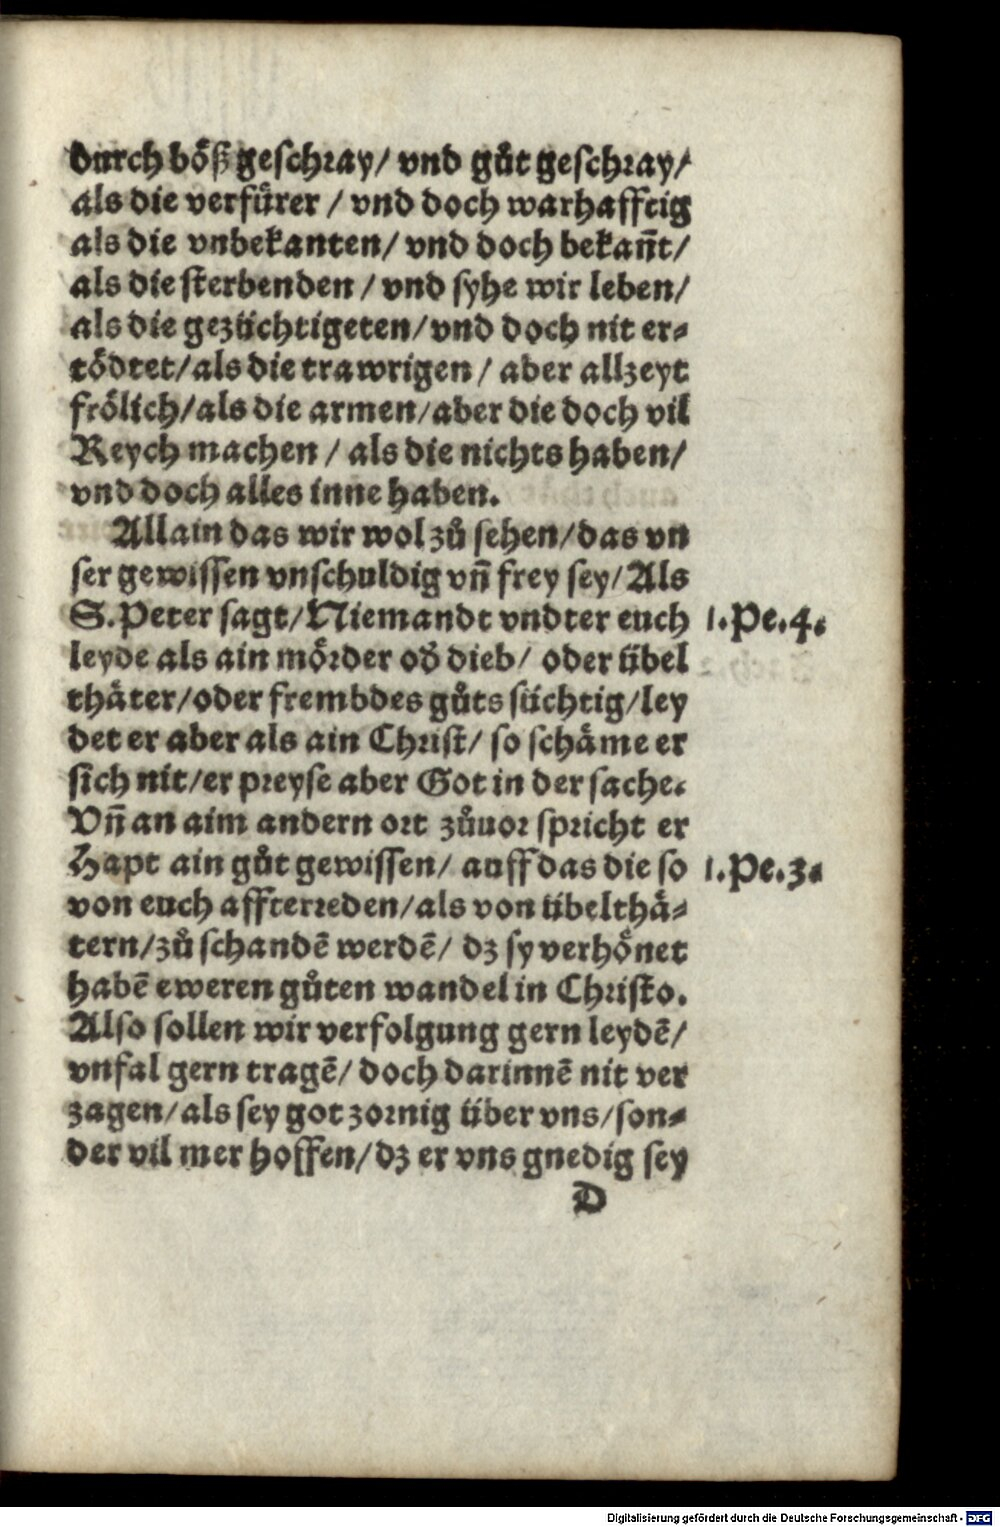 durch böß geschray/ vnd gůt geschray/
als die verfürer / vnd doch warhafftig
als die vnbekanten/ vnd doch bekañt/
als die sterbenden / vnd syhe wir leben/
als die gezüchtigeten/ vnd doch nit er-
tödtet/ als die trawrigen / aber allzeyt
frölich/ als die armen/ aber die doch vil
Reych machen / als die nichts haben/
vnd doch alles inne haben.
Allain das wir wol zů sehen/ das vn
ser gewissen vnschuldig vñ frey sey/ Als
S. Peter sagt/ Niemandt vndter euch 1. Pe. 4.
leyde als ain mörder oď dieb/ oder übel
thäter/ oder frembdes gůts süchtig/ ley
det er aber als ain Christ/ so schäme er
sich nit/ er preyse aber Got in der sache.
Vñ an aim andern ort zůuor spricht er
Hapt ain gůt gewissen/ auff das die so 1. Pe. 3.
von euch affterreden/ als von übelthä-
tern/ zů schandē werdē/ dz sy verhönet
habē eweren gůten wandel in Christo.
Also sollen wir verfolgung gern leydē/
vnfal gern tragē/ doch darinnē nit ver
zagen/ als sey got zornig über vns/ son-
der vil mer hoffen/ dz er vns gnedig sey
D
Digitalisierung gefördert durch die Deutsche Forschungsgemeinschaft - DFG